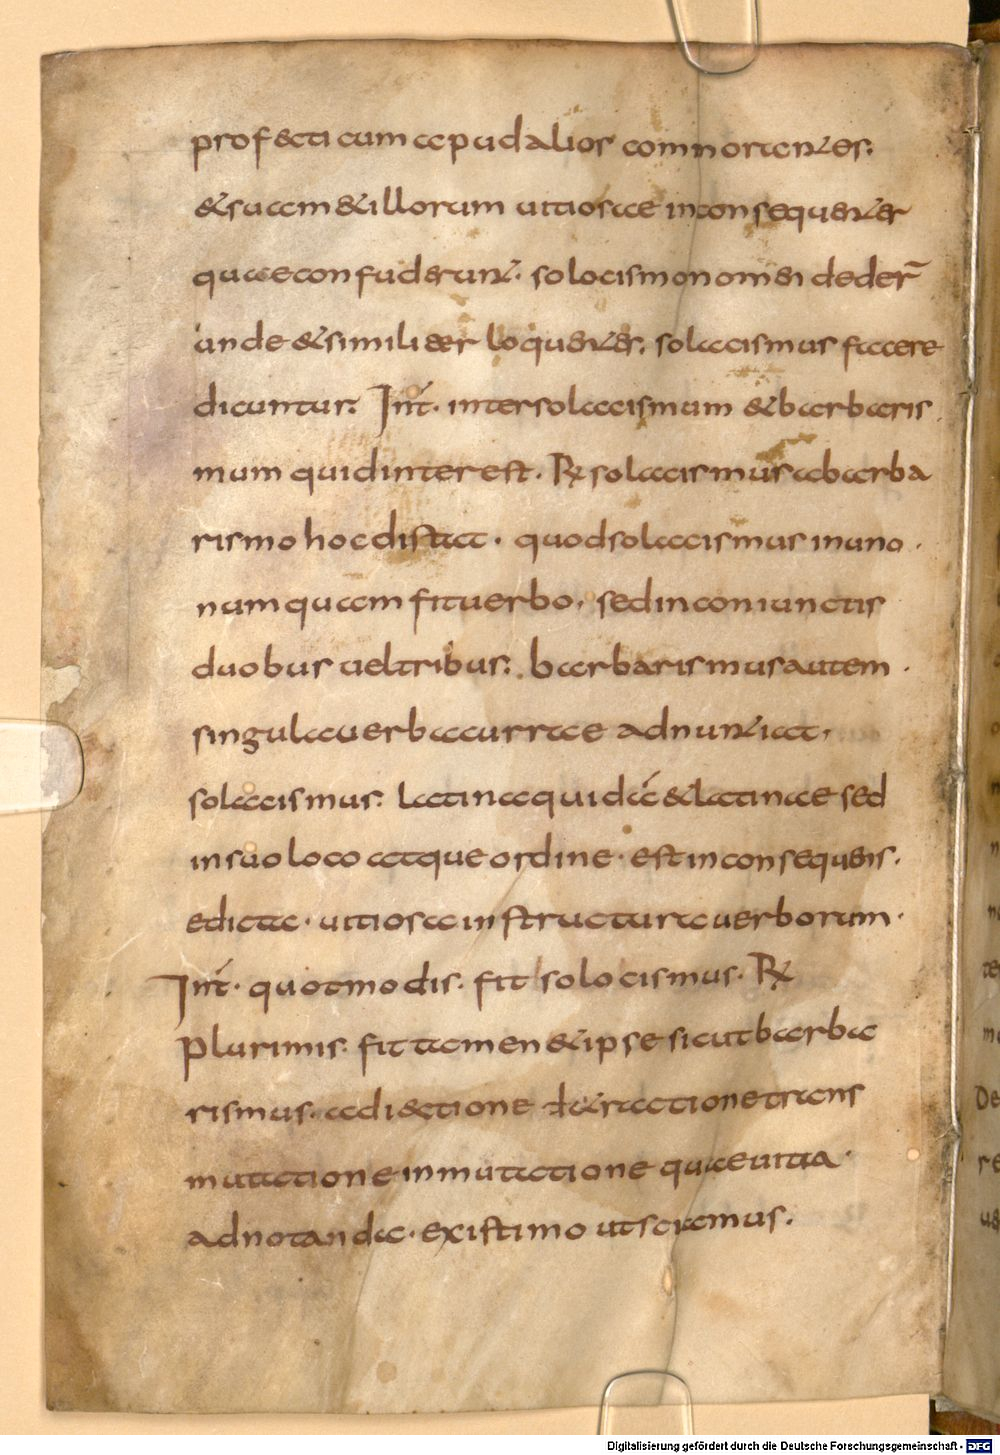 profecti cum apud alios commorantes:
& suam & illorum uitiosae inconsequenter
quae confuderunt. solocismo nomen deder̄
unde & similiter loquentes: soloecismus facere
dicuntur: Int́. inter soloecismum & barbaris
mum quid interest. R soloecismus a barba
rismo hoc distat. quod soloecismus in uno.
numquam fit uerbo, sed in coniunctis
duobus uel tribus: barbarismus autem.
singula uerba currite adnuntiat,
soloecismus: latina quid ḗ & latinae sed
in suo loco atque ordine. est inconsequens.
edicta. uitiosa in structura uerborum.
Int́. quot modis. fit solocismus. R
Plurimis. fit tamen & ipse sicut barba
rismus. adiectione detractione trans
mutatione inmutatione quae uitia.
adnotanda. existimo ut sciamus.
Digitalisierung gefördert durch die Deutsche Forschungsgemeinschaft - DFG